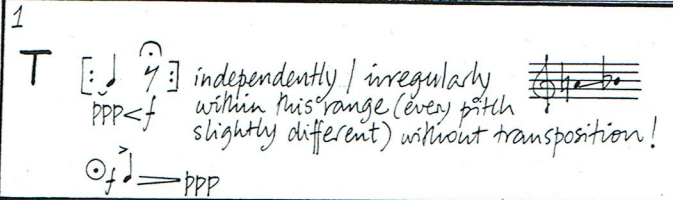 1
T
independently / irregularly
ppp < f within this° range (every pitch
slightly different) without transposition!
f > ppp